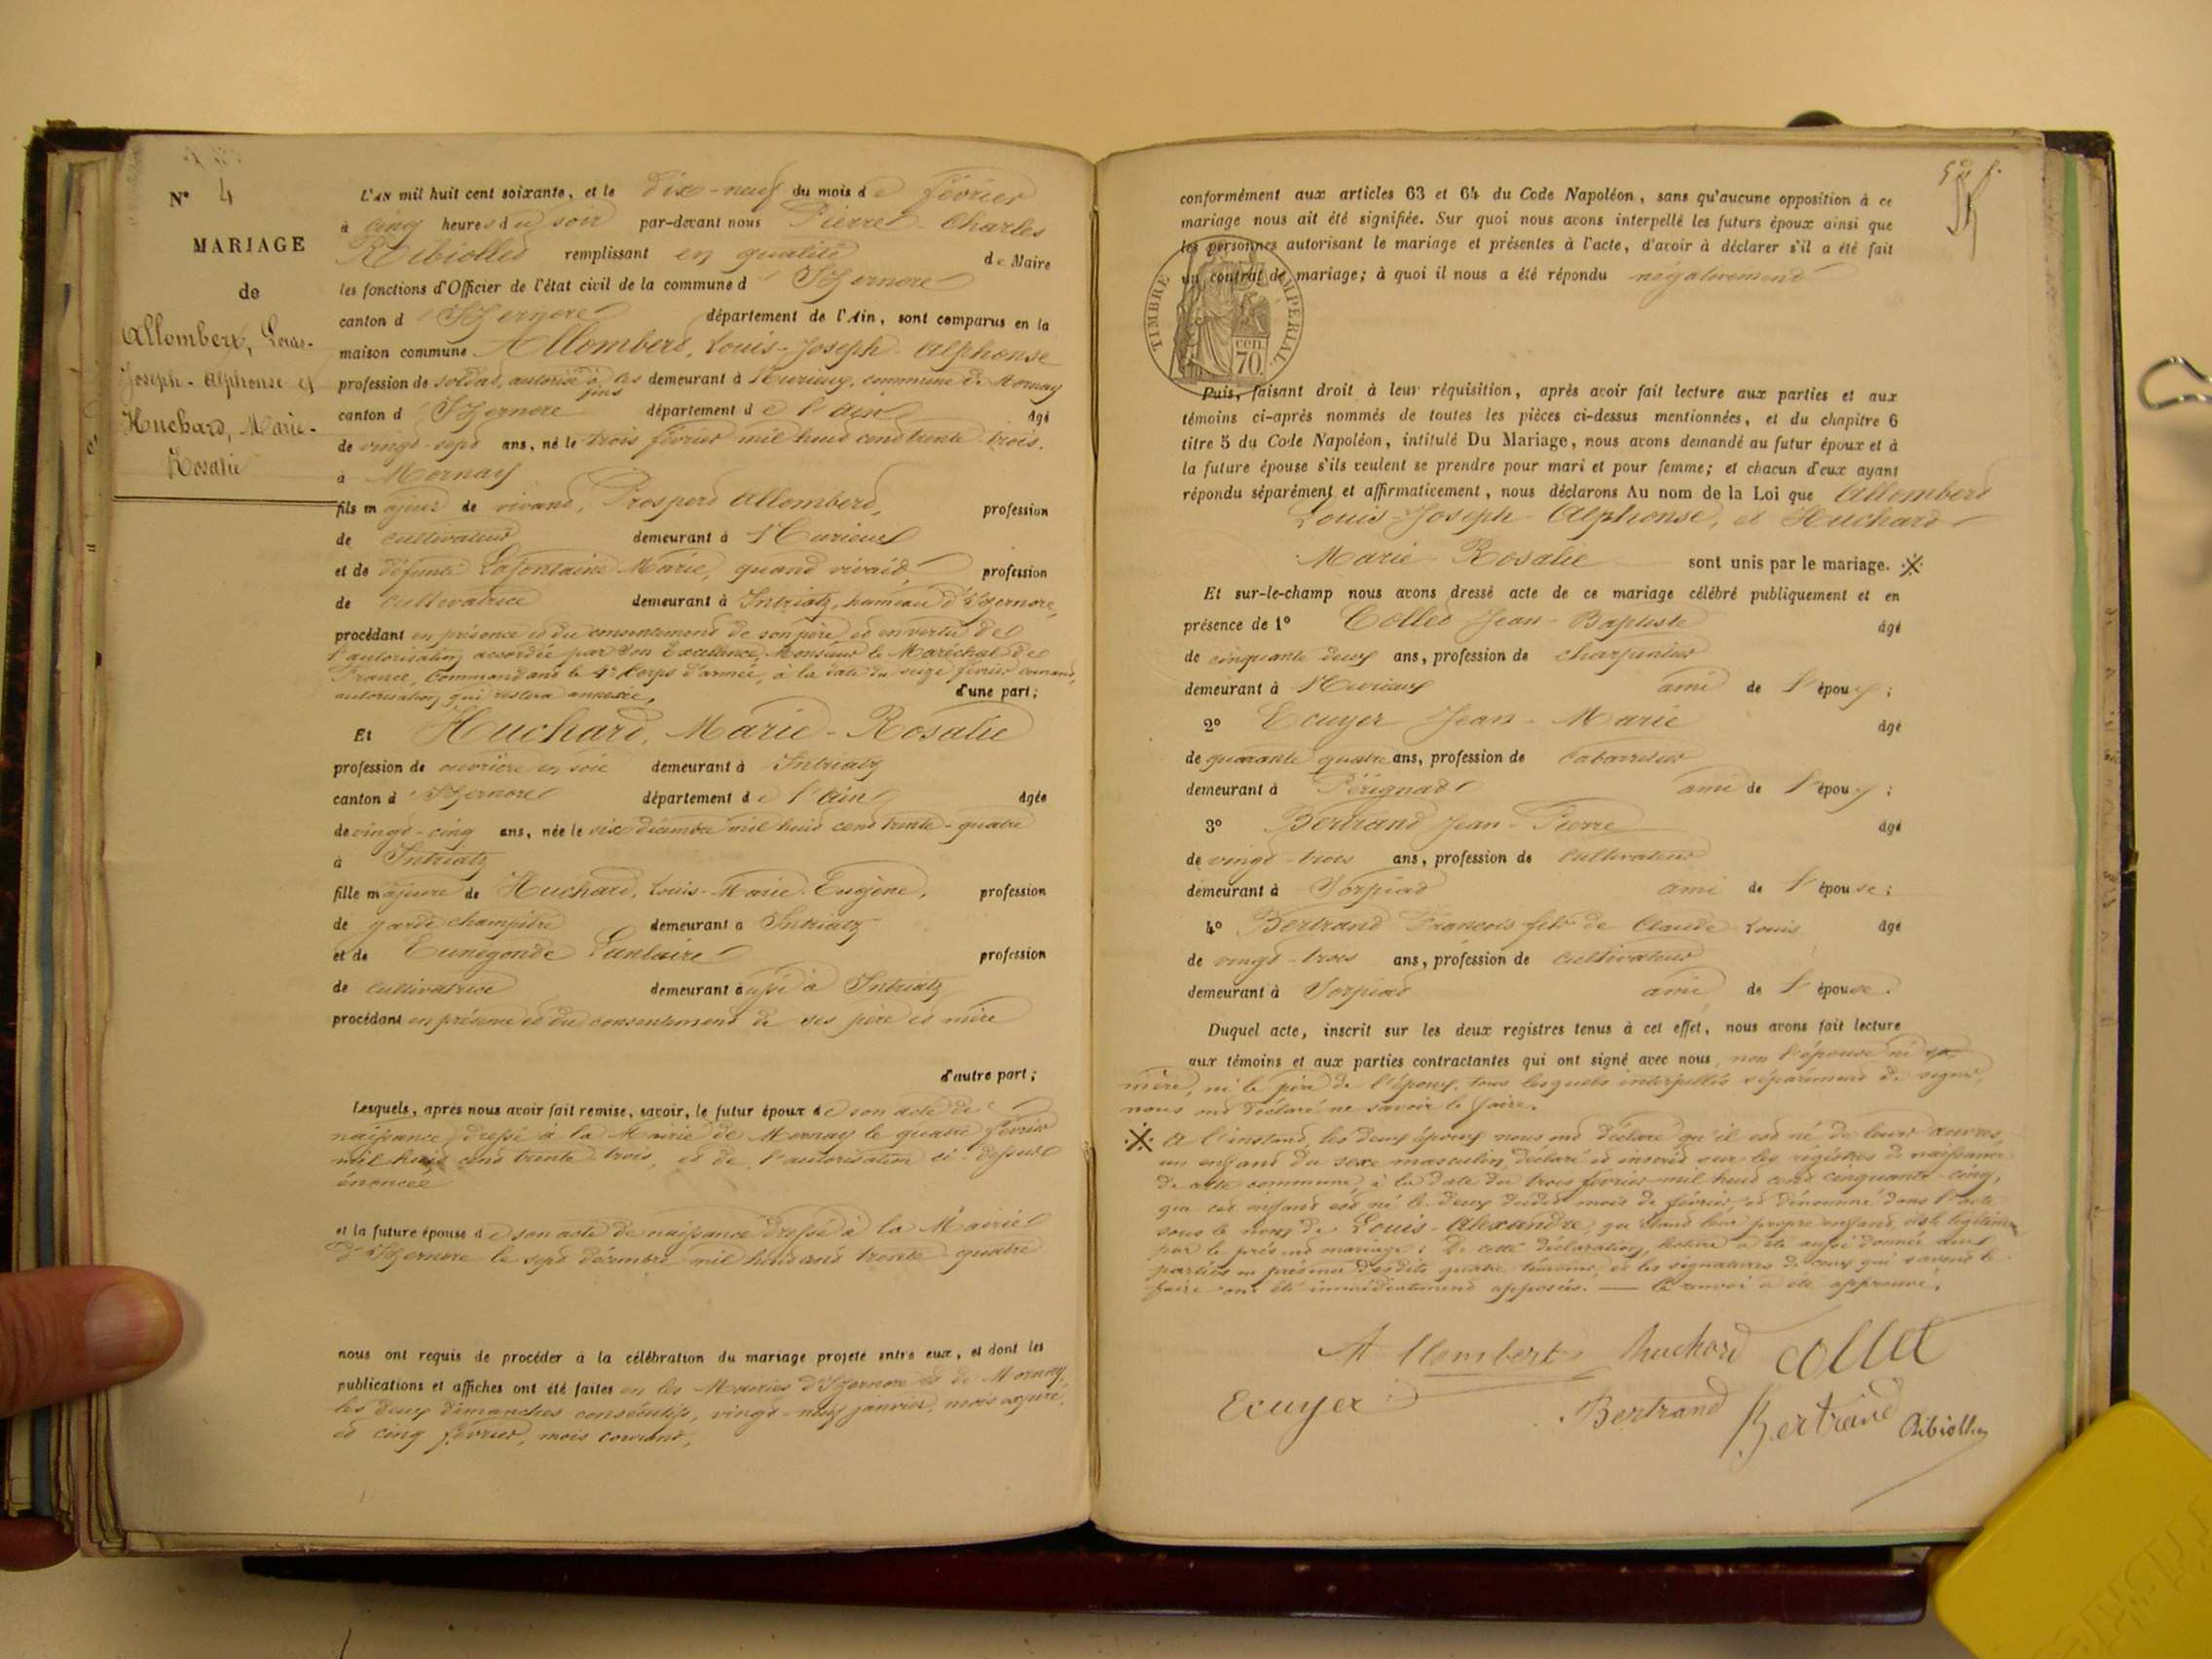 N° 4
MARIAGE
de
Allombert, Louis-
Joseph-Alphonse et
Huchard, Marie-
Rosalie
L'AN mil huit cent soixante, et le dix-neuf du mois de février
à cinq heures du soir par-devant nous Pierre-Charles
Ribiollet remplissant en qualité de Maire
les fonctions d'Officier de l'état civil de la commune d'Izernore
canton d'Izernore département de l'Ain, sont comparus en la
maison commune Allombert, Louis-Joseph-Alphonse
profession de soldat, autorisé à ces fins demeurant à Heurieux, commune de Mornay
canton d'Izernore département de l'Ain âgé
de vingt-sept ans, né le trois février mil huit cent trente-trois.
à Mornay
fils majeur de vivant, Prosper Allombert, profession
de cultivateur demeurant à
et de défunte Lafontaine Marie, quand vivait, profession
de cultivatrice demeurant à Intriatz, hameau d'Izernore,
procédant en présence et du consentement de son père, et en vertu de
l'autorisation accordée par Son Excellence, Monsieur le Maréchal de
France, Commandant le 4e Corps d'armée, à la date du seize février courant,
autorisation qui restera annexée, d'une part;
Et Huchard, Marie-Rosalie
profession de ouvrière en soie demeurant à Intriatz
canton d'Izernore département de l'Ain âgée
de vingt-cinq ans, née le six décembre mil huit cent trente-quatre
à Intriatz
fille majeure de Huchard, Louis-Marie-Eugène, profession
de garde champêtre demeurant à Intriatz
et de Cunégonde profession
de cultivatrice demeurant aussi à Intriatz
procédant en présence et du consentement de ses père et mère
d'autre part;
Lesquels, après nous avoir fait remise, savoir, le futur époux de son acte de
naissance, dressé à la Mairie de Mornay le quatre février
mil huit cent trente-trois, et de l'autorisation ci-dessus
énoncée
et la future épouse de son acte de naissance dressé à la Mairie
d'Izernore le sept décembre mil huit cent trente-quatre
nous ont requis de procéder à la célébration du mariage projeté entre eux, et dont les
publications et affiches ont été faites en les Mairies d'Izernore et de Mornay,
les deux dimanches consécutifs, vingt-neuf janvier, mois expiré,
et cinq février, mois courant,
conformément aux articles 63 et 64 du Code Napoléon, sans qu'aucune opposition à ce
mariage nous ait été signifiée. Sur quoi nous avons interpellé les futurs époux ainsi que
les personnes autorisant le mariage et présentes à l'acte, d'avoir à déclarer s'il a été fait
un contrat de mariage; à quoi il nous a été répondu négativement
TIMBRE IMPERIAL
cen. 70.
Puis, faisant droit à leur réquisition, après avoir fait lecture aux parties et aux
témoins ci-après nommés de toutes les pièces ci-dessus mentionnées, et du chapitre 6
titre 5 du Code Napoléon, intitulé Du Mariage, nous avons demandé au futur époux et à
la future épouse s'ils veulent se prendre pour mari et pour femme; et chacun d'eux ayant
répondu séparément et affirmativement, nous déclarons Au nom de la Loi que Allombert
Louis-Joseph-Alphonse, et Huchard
Marie-Rosalie sont unis par le mariage. ※
Et sur-le-champ nous avons dressé acte de ce mariage célébré publiquement et en
présence de 1° Collet Jean-Baptiste âgé
de cinquante deux ans, profession de charpentier
demeurant à ami de l'époux;
2° Ecuyer Jean-Marie âgé
de quarante quatre ans, profession de cabaretier
demeurant à Pérignat ami de l'époux;
3° Bertrand Jean-Pierre âgé
de vingt-trois ans, profession de cultivateur
demeurant à Sorpiat ami de l'épouse;
4° Bertrand François fils de Claude-Louis âgé
de vingt-trois ans, profession de cultivateur
demeurant à Sorpiat ami de l'épouse.
Duquel acte, inscrit sur les deux registres tenus à cet effet, nous avons fait lecture
aux témoins et aux parties contractantes qui ont signé avec nous, non l'épouse ni sa
mère, ni le père de l'époux, tous lesquels interpellés séparément de signer,
nous ont déclaré ne savoir le faire.
※ A l'instant, les deux époux nous ont déclaré qu'il est né de leurs œuvres,
un enfant du sexe masculin, déclaré et inscrit sur les registres de naissance
de cette commune, à la date du trois février mil huit cent cinquante-cinq,
que cet enfant est né le deux dudit mois de février, et dénommé dans l'acte
sous le nom de Louis-Alexandre; qu'étant leur propre enfant, ils le légitiment
par le présent mariage; De cette déclaration, lecture a été aussi donnée aux
parties en présence desdits quatre témoins, et les signatures de ceux qui savent le
faire ont été immédiatement apposées. — le renvoi a été approuvé.
Allombert huchard collet
Ecuyer Bertrand Bertrand Ribiollet